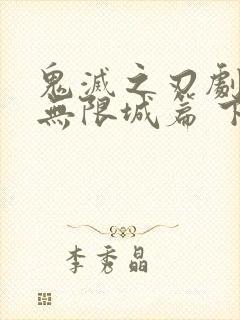 鬼滅之刃劇
無限城篇 下
李秀晶